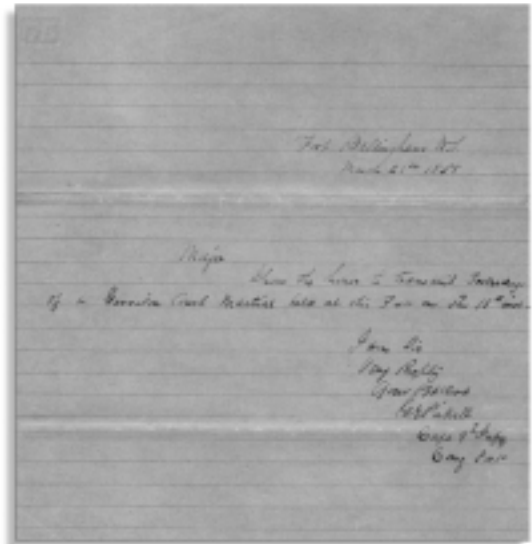 Fort Bellingham W.T.
March 21st 1858
Major
I have the honor to transmit Proceedings
of a Garrison Court Martial held at this Post on the 18th inst.
I am Sir
Very Resptly
Your Obt
G E Pickett
Capt 9th Infy
Comg Post